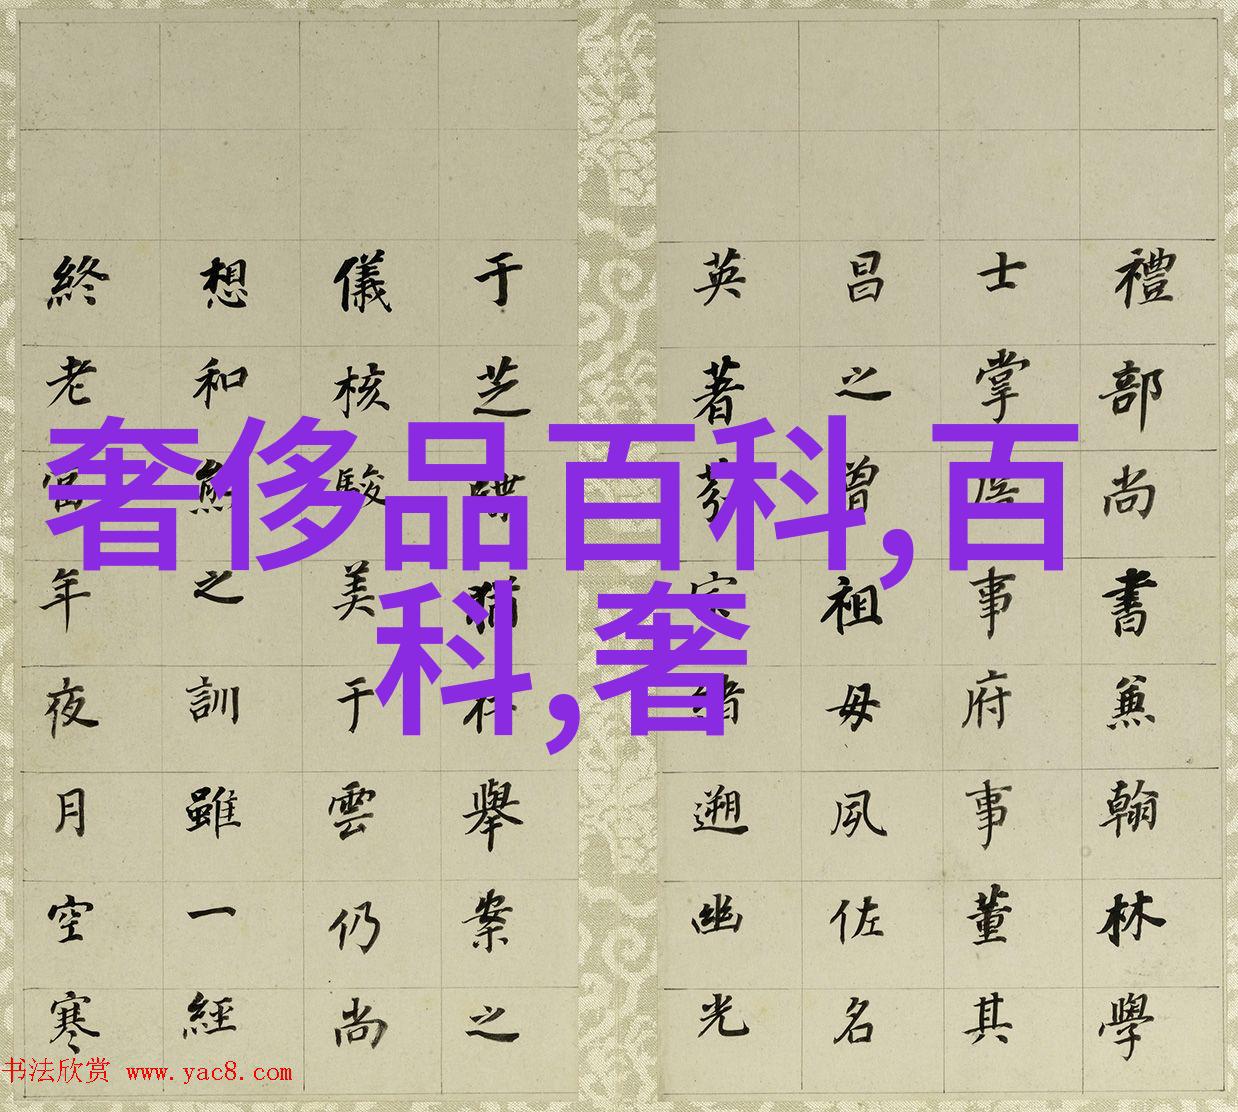 奢侈品百科,百
科,奢
禮部尚書兼翰林學
士掌事府事董其
昌之曾祖母夙佐名
英著芬遡幽光
于芝舉案之
儀核駿美于雲仍尚
想和熊之訓雖一經
終老年夜月空寒
书法欣赏 www.yac8.com